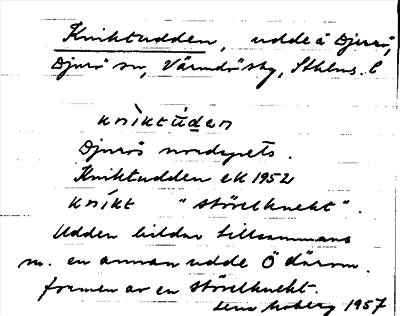 Kniktudden, udde å Djurö,
Djurö sn, Värmdö skg, Sthlms. l
knìktúdan
Djurös nordspets.
Kniktudden ek 1952
kníkt "stövelknekt".
Udden bildar tillsammans
m. en annan udde Ö därom
formen av en stövelknekt.
Moberg 1957